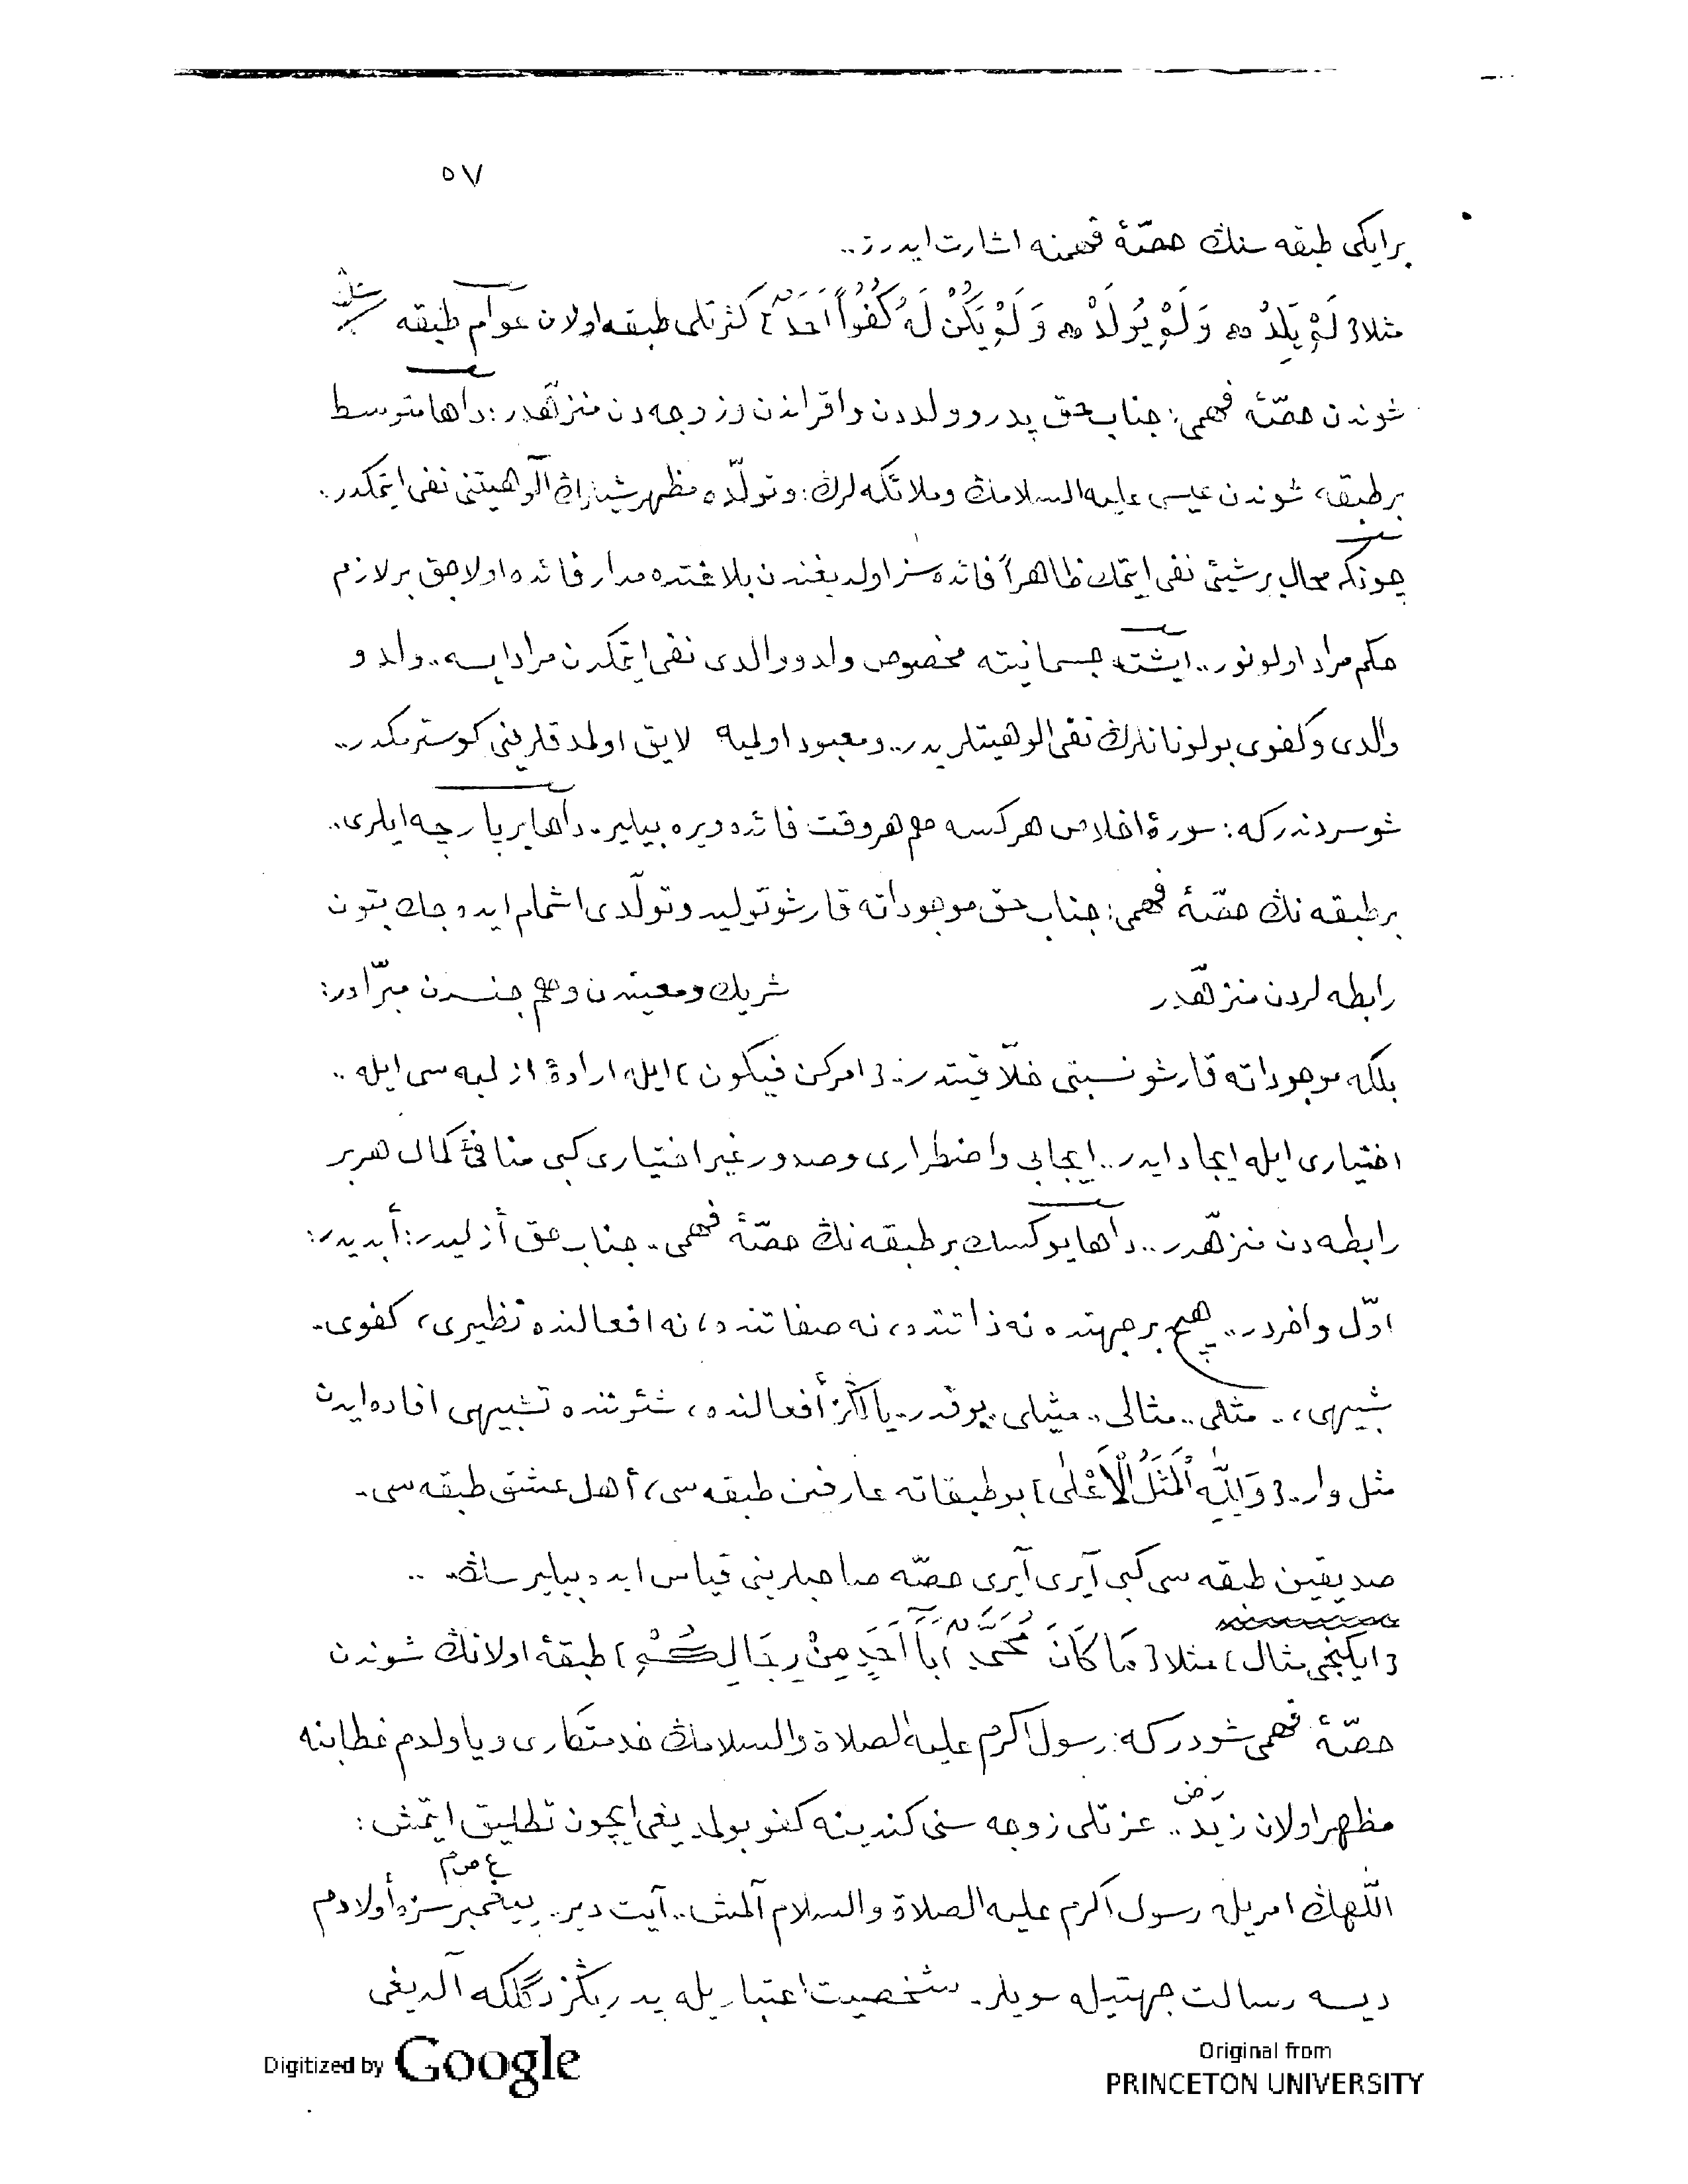 ٥٧
بر ايكى طبقه سنڭ حصّهٔ فهمنه اشارت ايدرز..
مثلا {لَمْ يَلِدْ وَلَمْ يُولَدْ وَلَمْ يَكُنْ لَهُ كُفُواً اَحَدٌ} كثرتلى طبقه اولان عوام طبقه سنڭ
شوندن حصّهٔ فهمى: جناب حق پدر و ولددن و اقراندن و زوجه دن منزّهدر: داها متوسط
بر طبقه، شوندن عيسى عليه السلامڭ و ملائكه لرڭ: و تولّده مظهر شيلرڭ اَلوهيتنى نفى ايتمكدر.
چونكه محال بر شيئى نفى ايتمك ظاهراً فائده سز اولديغندن بلاغتده مدار فائده اولاجق بر لازم
حكم مراد اولونور.. ايشته جسمانيته مخصوص ولد و والدى نفى ايتمكدن مراد ايسه.. ولد و
والدى و كفوى بولونانلرڭ نفى الوهيتلريدر.. و معبود اولميه لايق اولمدقلرينى كوسترمكدر..
شو سردندركه: سورۀ اخلاص هر كسه هم هر وقت فائده ويره بيلير. داها بر پارچه ايلرى..
بر طبقه نڭ حصّهٔ فهمى: جناب حق موجوداته قارشو توليد و تولّدى اشمام ايده جك بتون
رابطه لردن منزّهدر شريك و معيندن و هم جنسدن مبرّادر:
بلكه موجوداته قارشو نسبتى خلّاقيتدر. {امر كن فيكون} ايله ارادۀ ازليه سى ايله..
اختيارى ايله ايجاد ايدر.. ايجابى و اضطرارى و صدور غير اختيارى كبى منافئ كمال هر بر
رابطه دن منزّهدر.. داها يوكسك بر طبقه نڭ حصّهٔ فهمى. جناب حق أزليدر: أبديدر:
اوّل و اخردر.. هيچ بر جهتده نه ذاتنده، نه صفاتنده، نه افعالنده نظيرى، كفوى.
شبيهى،.. مثلى.. مثالى.. مثيلى.. يوقدر. يالڭز أفعالنده، شئوننده تشبيهى افاده ايدن
مثل وار.. {وَلِلّٰهِ الْمَثَلُ الْاَعْلٰى} بو طبقاته عارفين طبقه سى، أهل عشق طبقه سى.
صديقين طبقه سى كبى آيرى آيرى حصّه صاحبلرينى قياس ايده بيليرسڭ. ..
{ايكنجى مثال} مثلا {مَا كَانَ مُحَمَّدٌ اَبَٓا اَحَدٍ مِنْ رِجَالِكُمْ} طبقهٔ اولانڭ شوندن
حصّهٔ فهمى شودركه: رسول اكرم عليه الصلاة والسلامڭ خدمتكارى و يا ولدم خطابنه
مظهر اولان زيد رض.. عزتلى زوجه سنى كندينه كفو بولمديغى ايچون تطليق ايتمش:
اللّٰهڭ امريله رسول اكرم عليه الصلاة والسلام آلمش.. آيت دير.. پيغمبر ع ص م سزه أولادم
ديسه رسالت جهتيله سويلر. شخصيت اعتباريله پدريڭز دگلكه آلديغى
Digitized by Google
Original from
PRINCETON UNIVERSITY